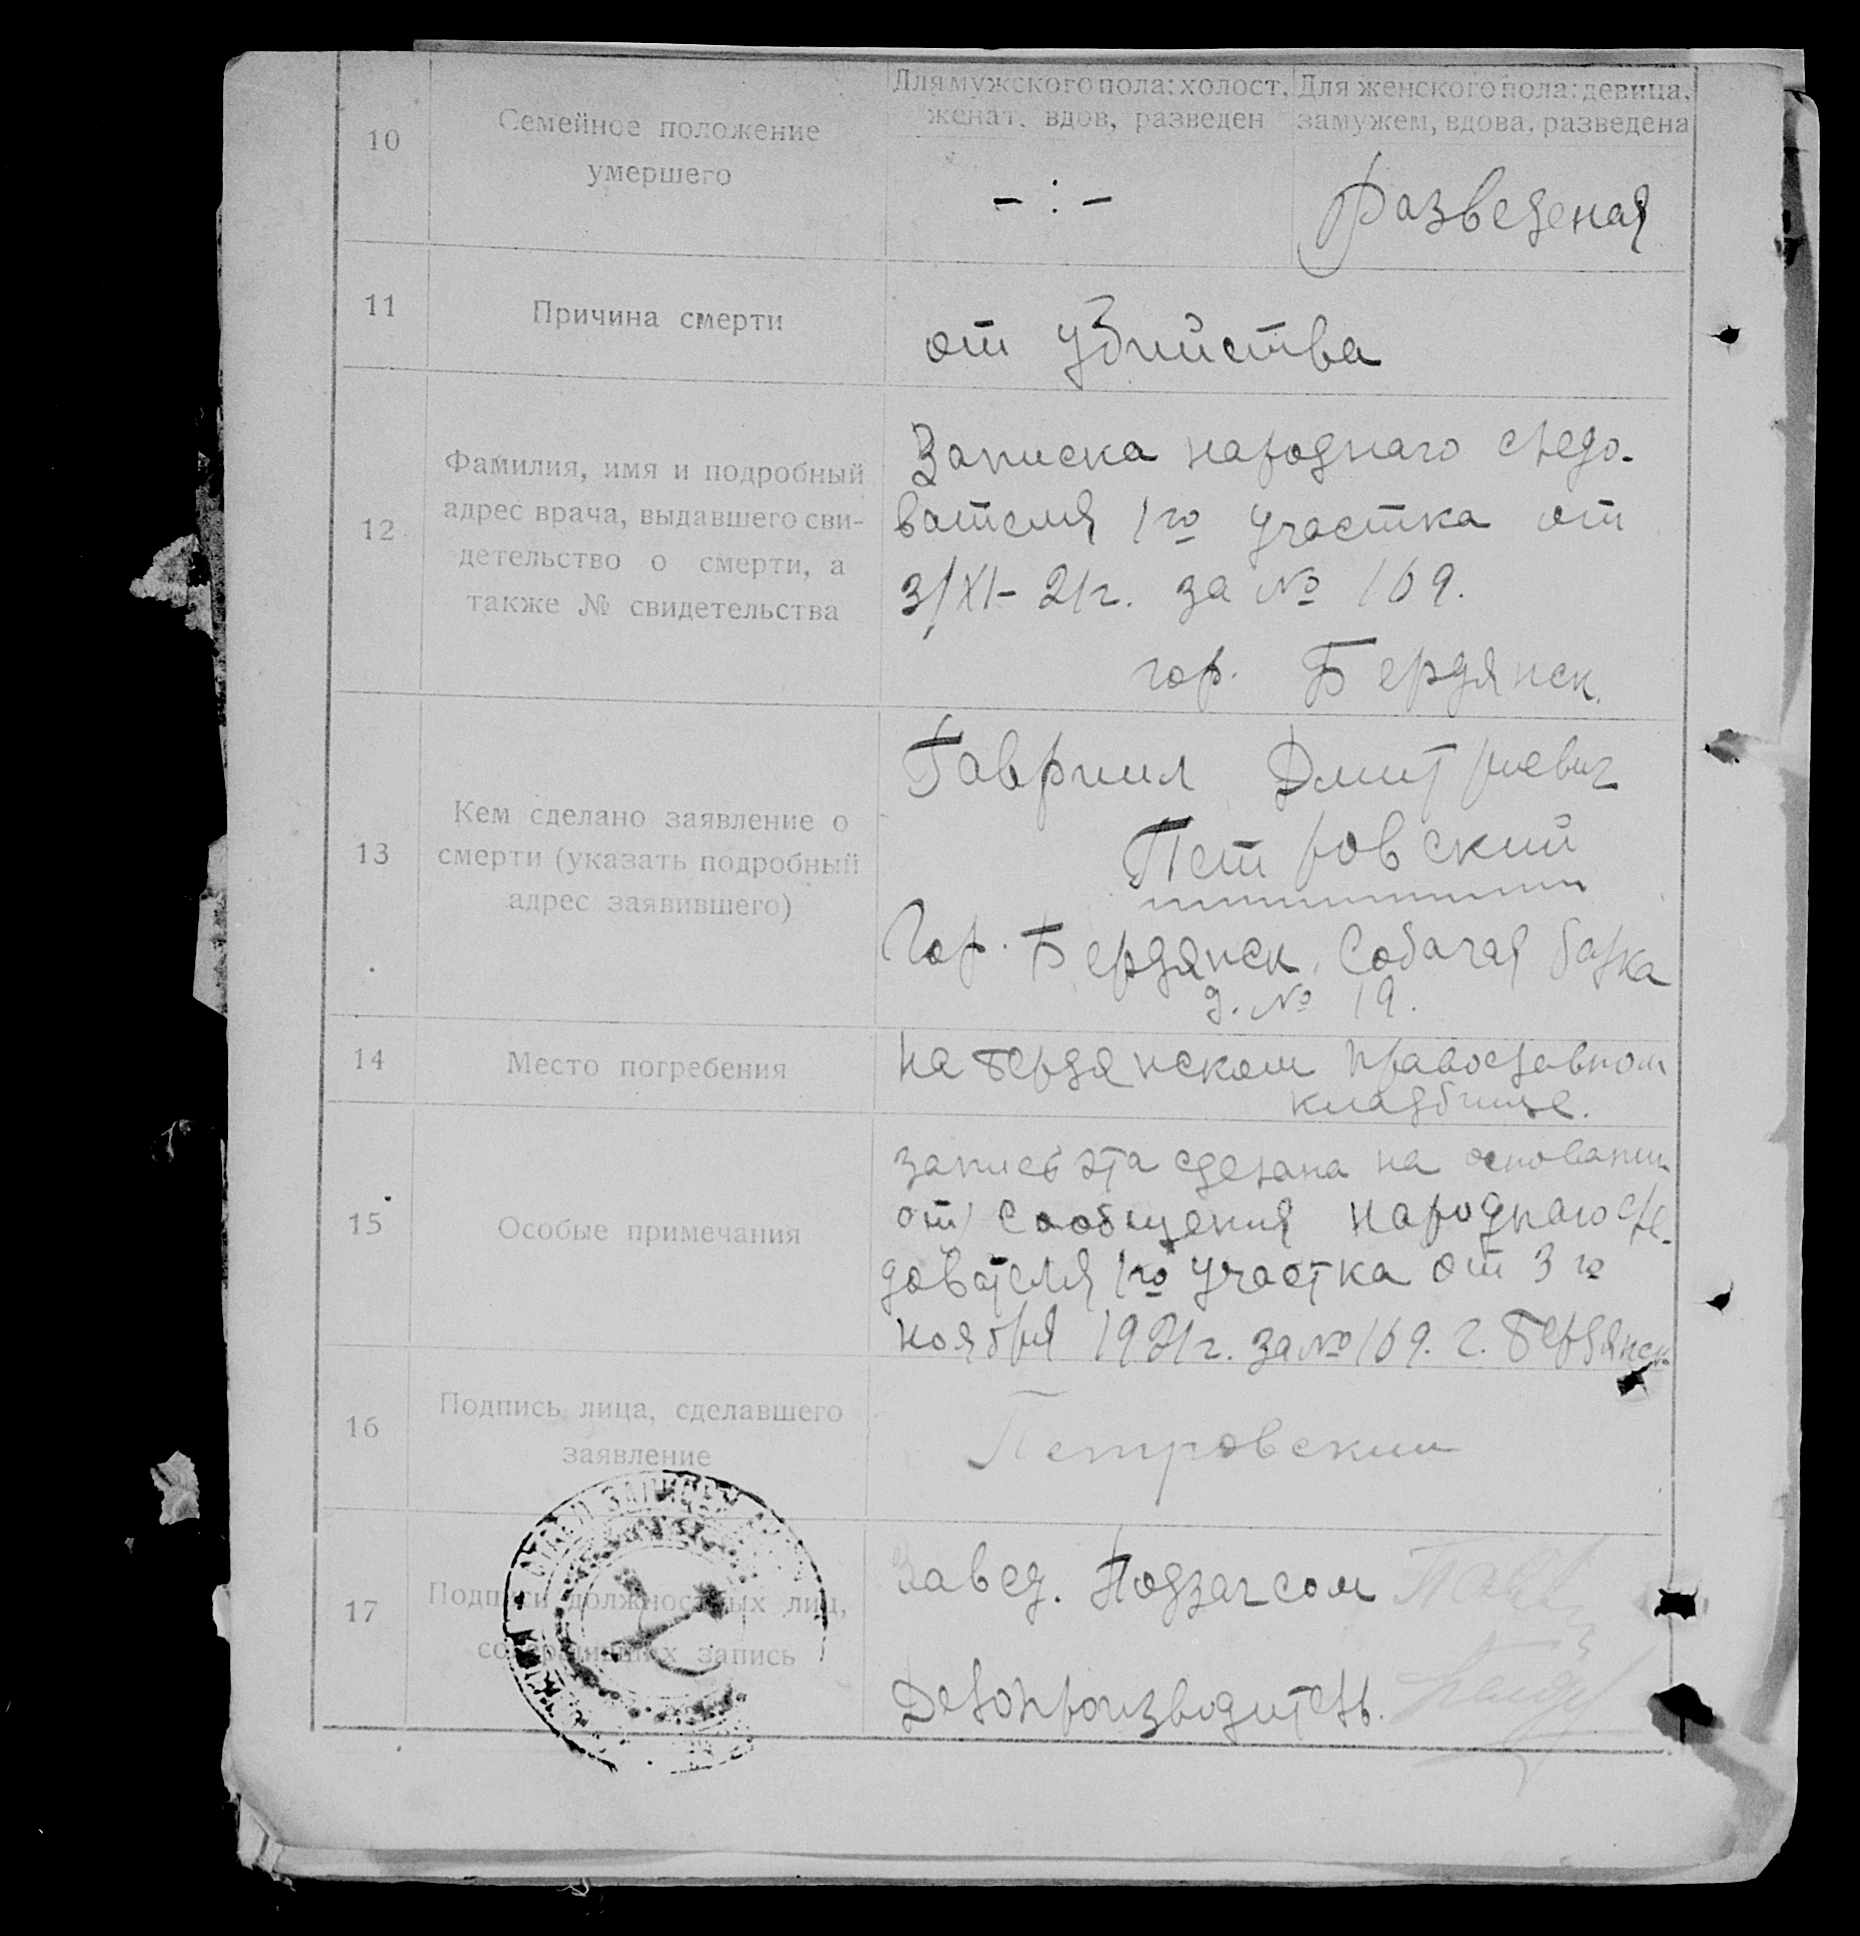 Для мужского пола: холост, женат, вдов, разведен
Для женского пола: девица, замужем, вдова, разведена
10
Семейное положение
умершего
- : -
Разведеная
11
Причина смерти
от убийства
12
Фамилия, имя и подробный
адрес врача, выдавшего сви-
детельство о смерти, а
также № свидетельства
Записка народнаго следо-
вателя 1го участка от
3/XI- 21г. за № 169.
гор. Бердянск.
13
Кем сделано заявление о
смерти (указать подробный
адрес заявившего)
Гавриил Дмитриевич
Петровский
Гор. Бердянск, Собачая балка
д. № 19.
14
Место погребения
на Бердянском православном
кладбище.
15
Особые примечания
запись эта сделана на основании
от) сообщения народнаго сле-
дователя 1го участка от 3 го
ноября 1921г. за № 169. г. Бердянск
16
Подпись лица, сделавшего
заявление
Петровский
17
Подписи должностных лиц,
совершивших запись
Завед. Подзагсом
Делопроизводитель.